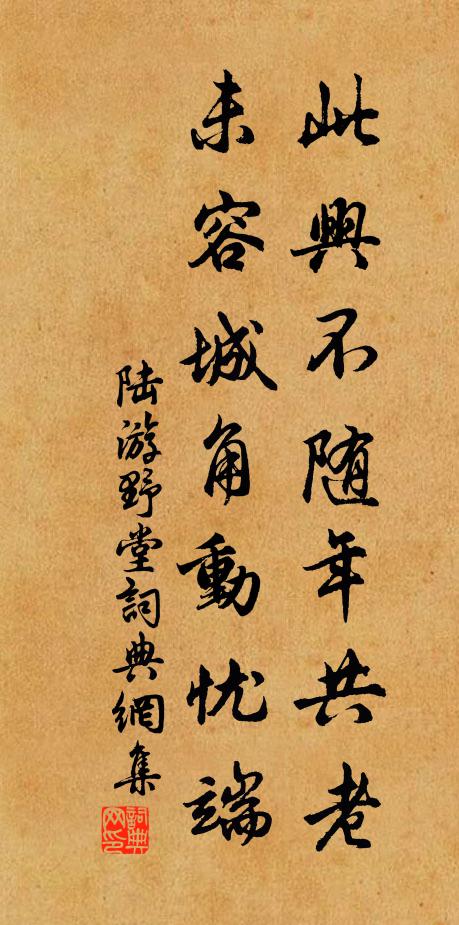 此興不随年共老
未容城角動忧端
陆游野堂詞典網集
詞典网印